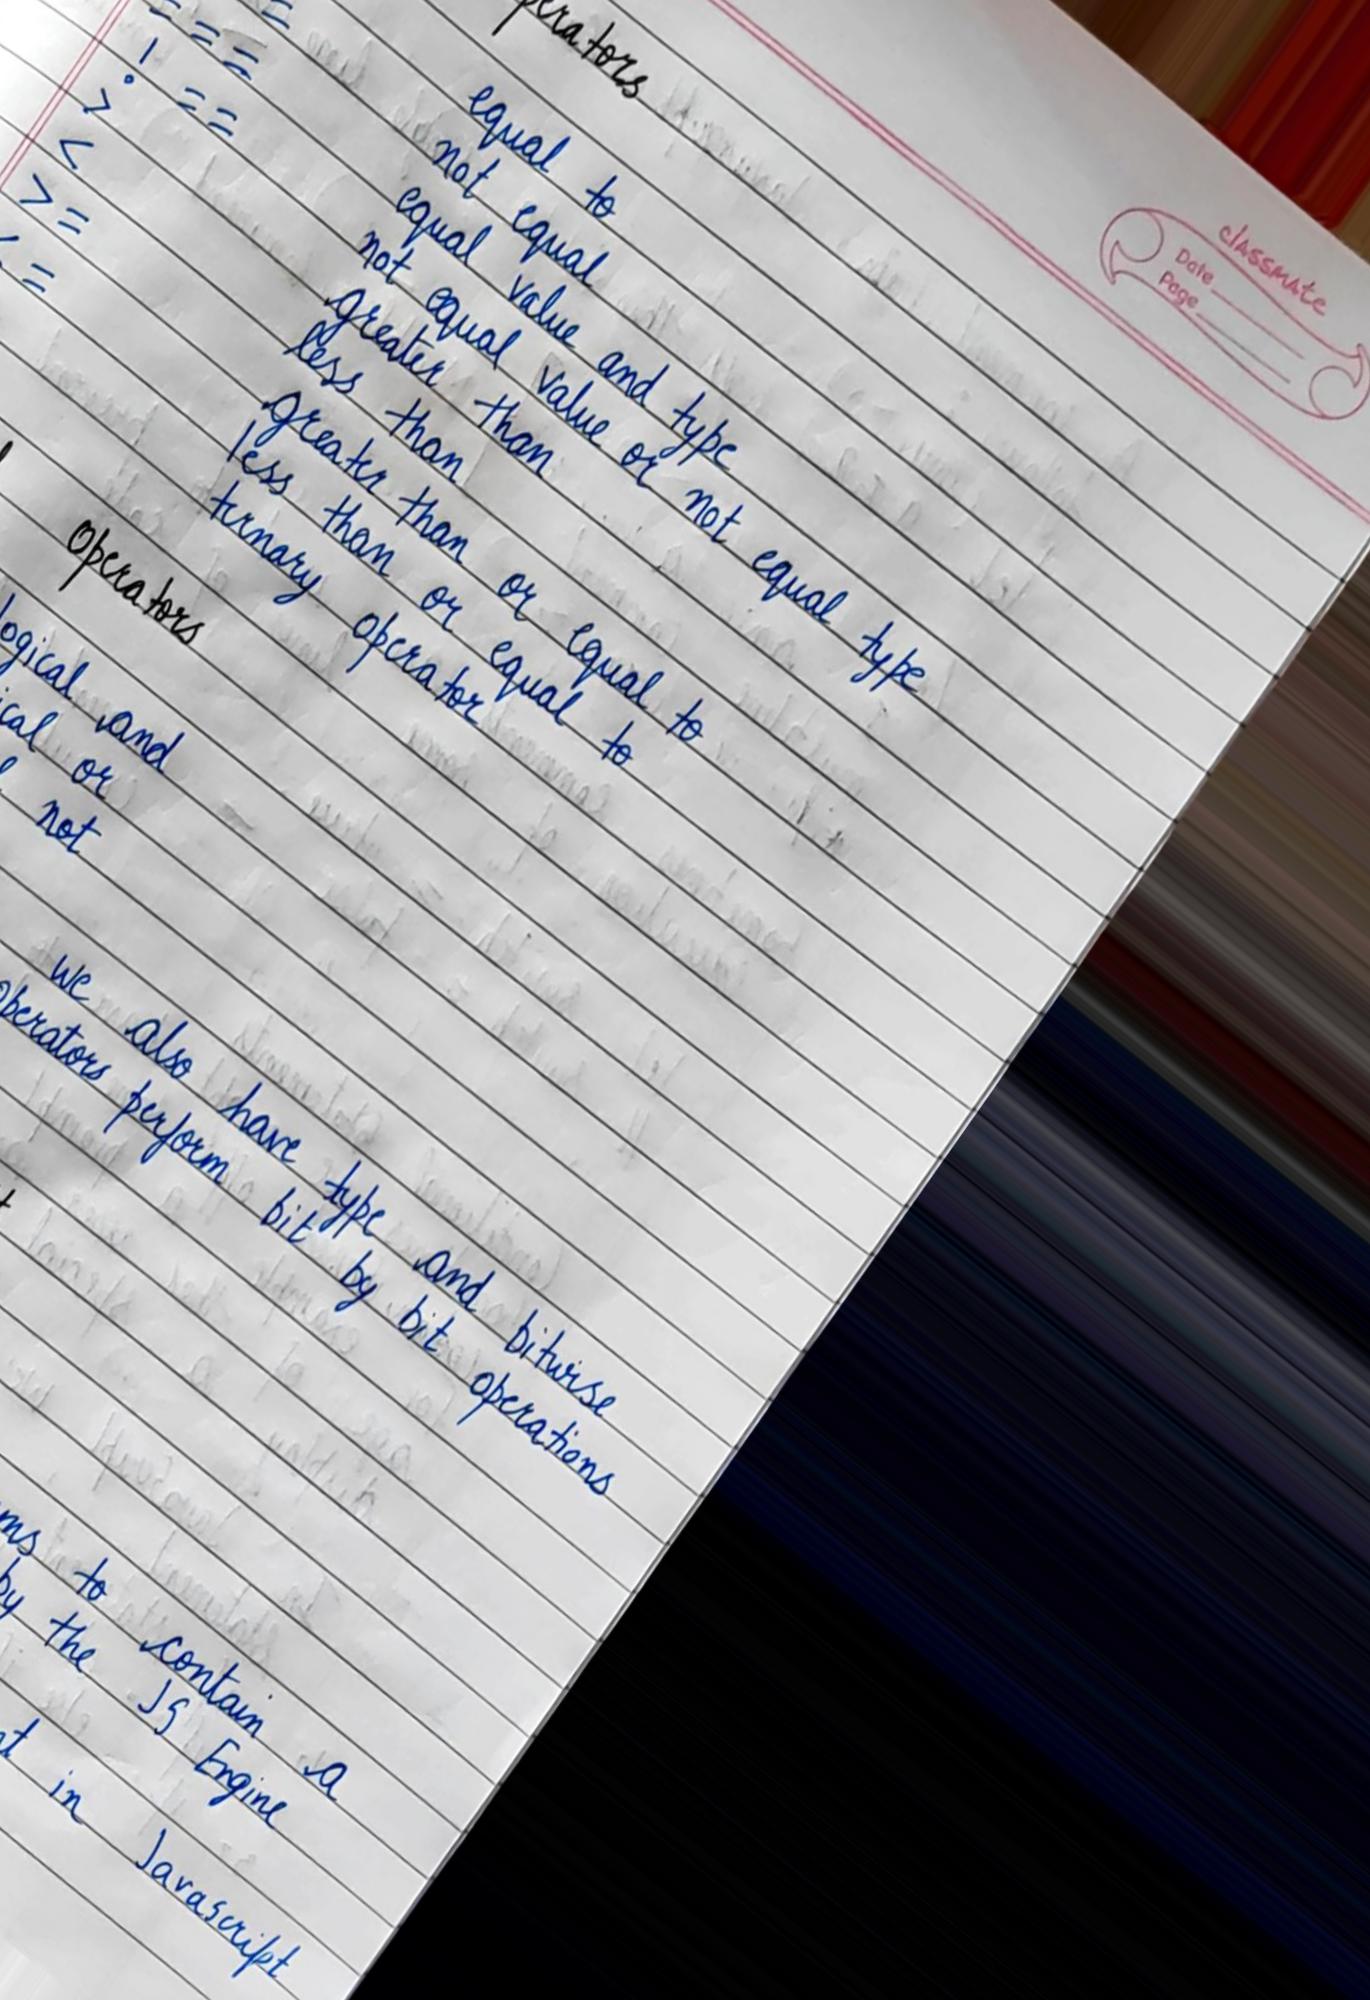 classmate
Date
Page
equal to
not equal
=== equal value and type
! == not equal value or not equal type
> greater than
< less than
>= greater than or equal to
<= less than or equal to
ternary operator
operators
logical and
or
not
we also have type and bitwise
operators perform bit by bit operations
to contain a
by the JS Engine
in Javascript